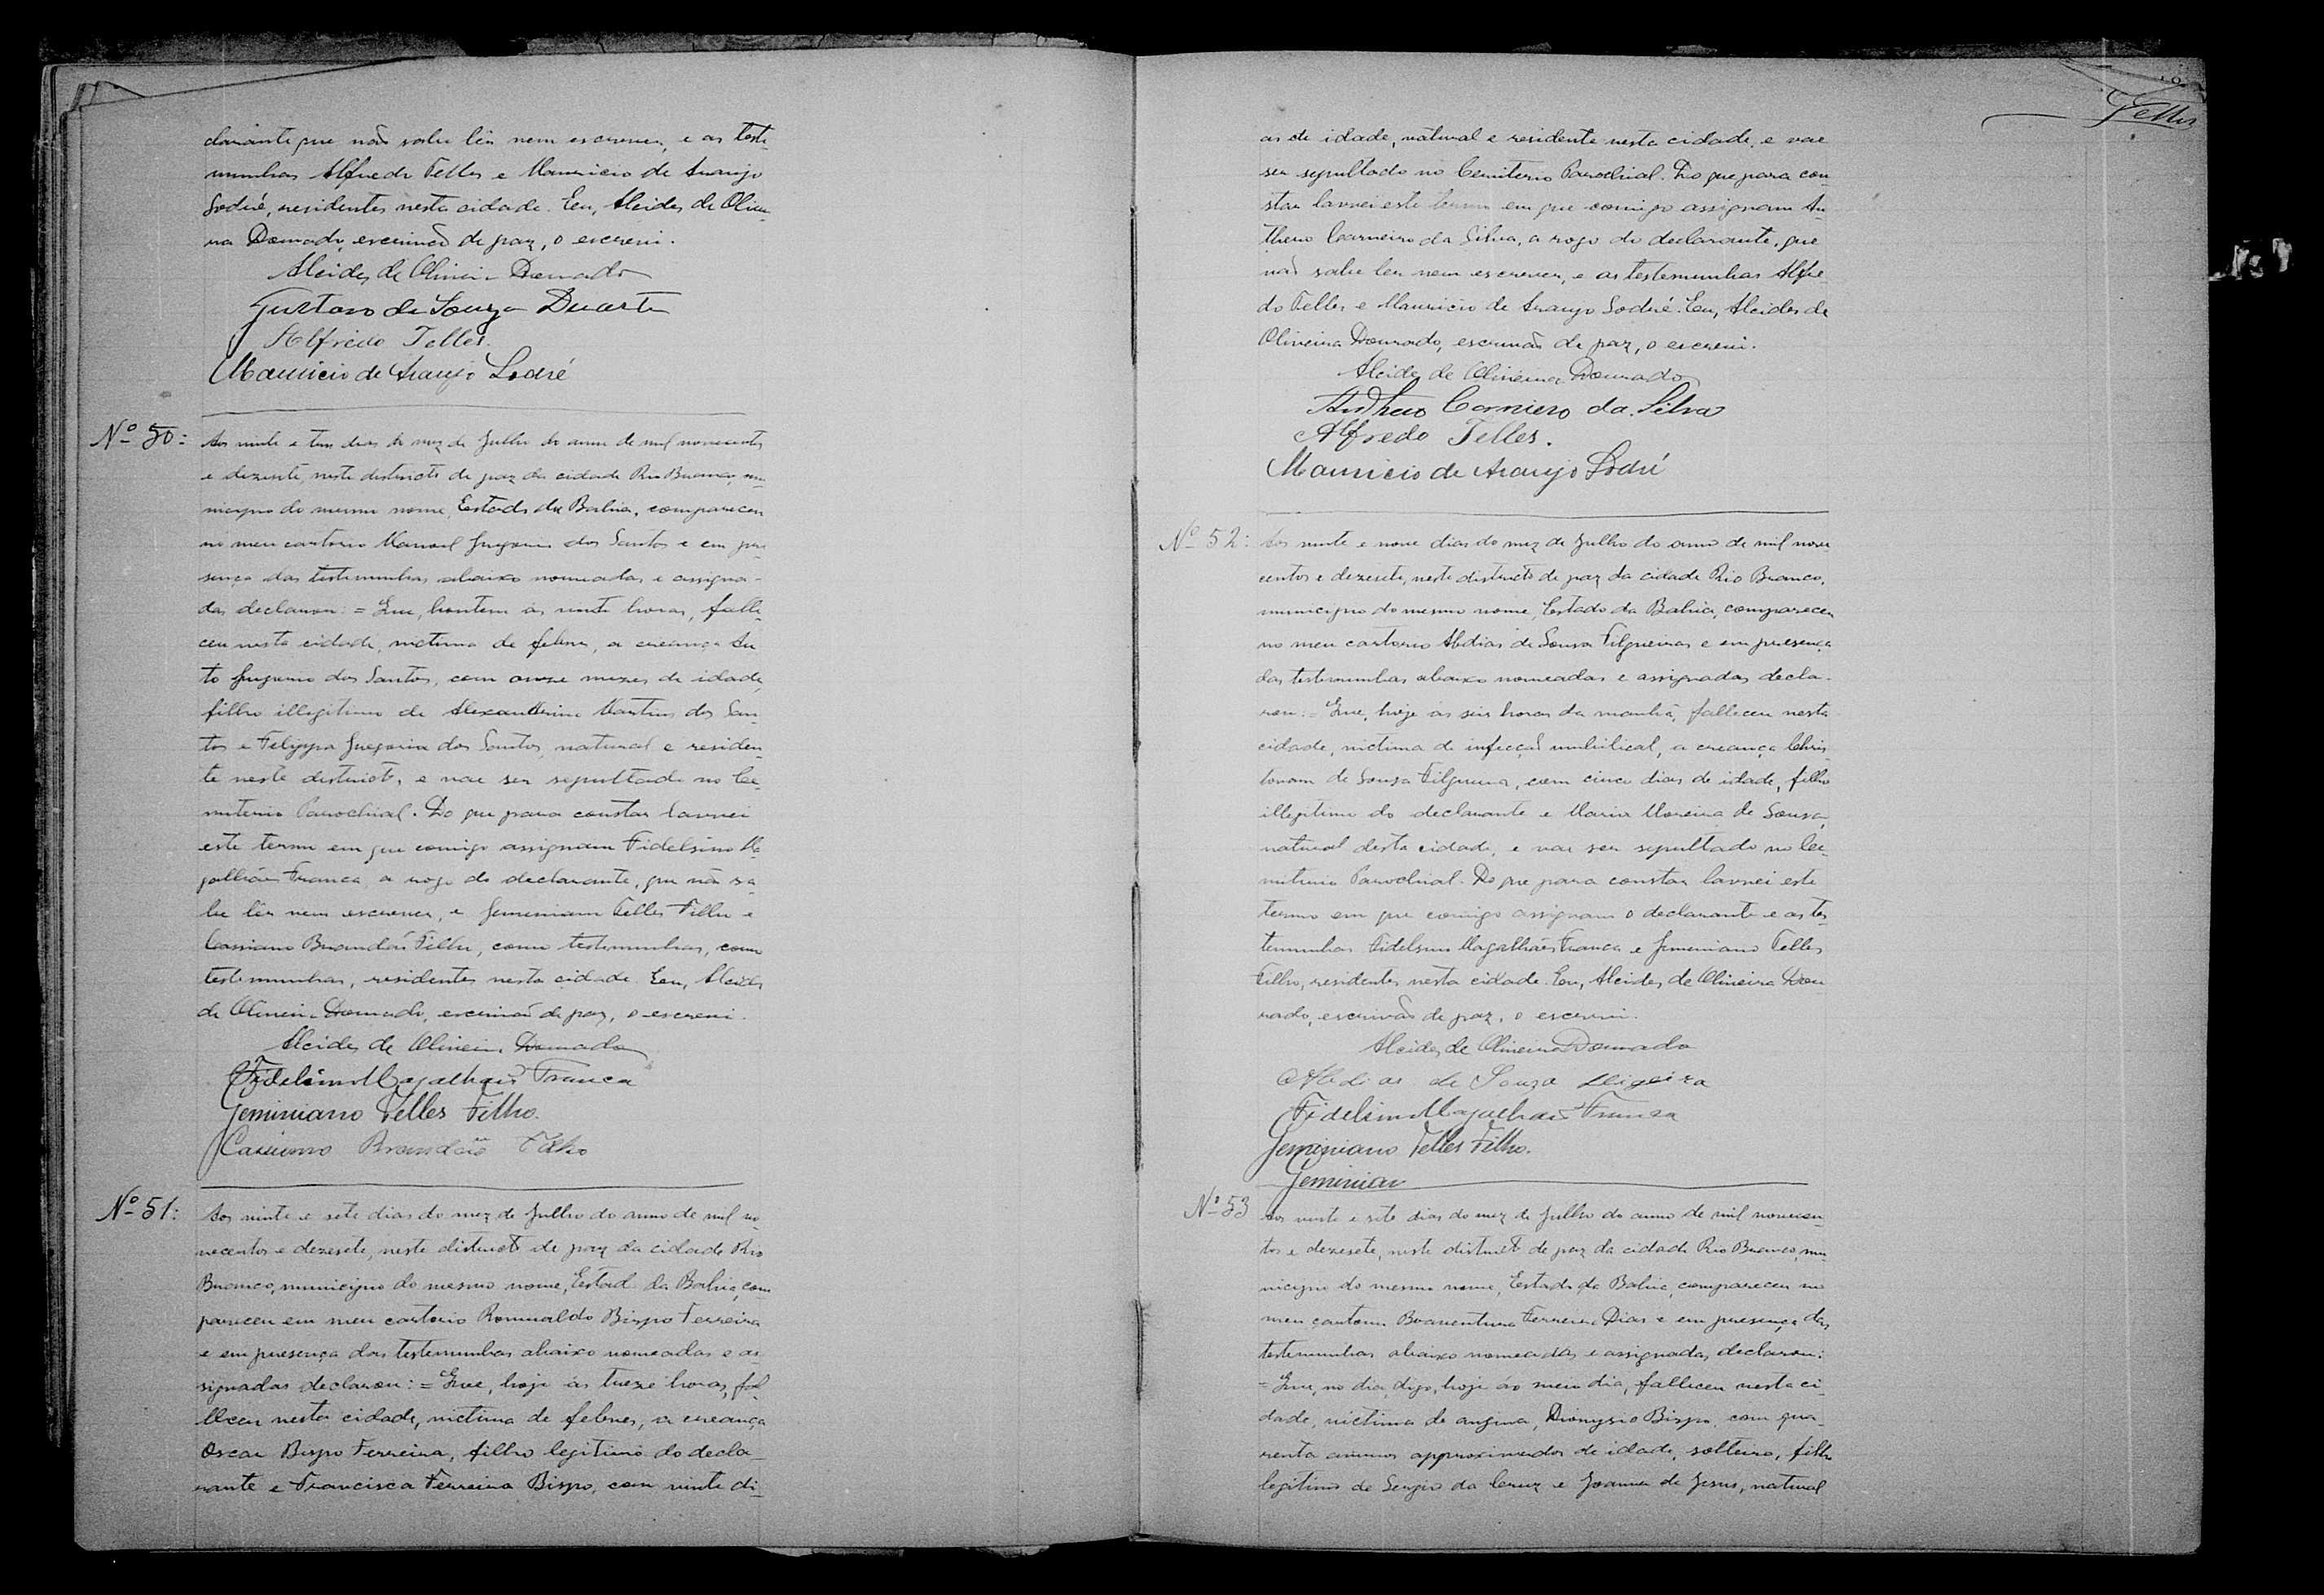 clarante que não sabe lêr nem escrever, e as teste-
munhas Alfredo Telles e Mauricio de Araujo
Sodré, residentes nesta cidade. Eu, Alcides de Olivei-
ra Dourado, escrivão de paz, o escrevi.
Alcides de Oliveira Dourado
Gustavo de Souza Duarte
Alfredo Telles.
Mauricio de Araujo Sodré
Nº 50:
Aos vinte e tres dias do mez de Julho do anno de mil novecentos
e dezesete, neste districto de paz da cidade Rio Branco, mu-
nicipio do mesmo nome, Estado da Bahia, compareceu
no meu cartorio Manoel Gregorio dos Santos e em pre-
sença das testemunhas abaixo nomeadas e assigna-
das declarou: = Que, hontem ás vinte horas, falle-
ceu nesta cidade, victima de febre, a creança
Gregorio dos Santos, com onze mezes de idade,
filho illegitimo de Alexandrino Martins dos San-
tos e Felippa Gregoria dos Santos, natural e residen-
te neste districto, e vae ser sepultado no Ce-
miterio Parochial. Do que para constar lavrei
este termo em que comigo assignam Fidelsino Ma-
galhães Franca, a rogo do declarante, que não sa-
be lêr nem escrever, e Geminiano Telles Filho e
Cassiano Brandão Filho, como testemunhas, como
testemunhas, residentes nesta cidade. Eu, Alcides
de Oliveira Dourado, escrivão de paz, o escrevi.
Alcides de Oliveira Dourado
Fidelsino Magalhães Franca
Geminiano Telles Filho.
Cassiano Brandão Filho
Nº 51:
Aos vinte e sete dias do mez de Julho do anno de mil no-
vecentos e dezesete, neste districto de paz da cidade Rio
Branco, municipio do mesmo nome, Estado da Bahia, com
pareceu em meu cartorio Romualdo Bispo Ferreira
e em presença das testemunhas abaixo nomeadas e as-
signadas declarou: = Que, hoje ás treze horas, fal-
leceu nesta cidade, victima de febres, a creança
Oscar Bispo Ferreira, filho legitimo do decla-
rante e Francisca Ferreira Bispo, com vinte di-
Telles
as de idade, natural e residente nesta cidade, e vae
ser sepultado no Cemiterio Parochial. Do que para con-
star lavrei este termo em que comigo assignam An-
thero Carneiro da Silva, a rogo do declarante, que
não sabe ler nem escrever, e as testemunhas Alfre-
do Telles e Mauricio de Araujo Sodré. Eu, Alcides de
Oliveira Dourado, escrivão de paz, o escrevi.
Alcides de Oliveira Dourado
Anthero Carneiro da Silva
Alfredo Telles.
Mauricio de Araujo Sodré
Nº 52:
Aos vinte e nove dias do mez de Julho do anno de mil nove
centos e dezesete, neste districto de paz da cidade Rio Branco,
municipio do mesmo nome, Estado da Bahia, compareceu
no meu cartorio Abdias de Sousa Filgueiras e em presença
das testemunhas abaixo nomeadas e assignadas decla-
rou: = Que, hoje as seis horas da manhã, falleceu nesta
cidade, victima de infecção umbilical, a creança Chris-
tovam de Souza Filgueira, com cinco dias de idade, filho
illegitimo do declarante e Maria Moreira de Sousa,
natural desta cidade, e vae ser sepultado no Ce-
miterio Parochial. Do que para constar lavrei este
termo em que comigo assignam o declarante e as tes-
temunhas Fidelsino Magalhães Franca e Geminiano Telles
Filho, residentes nesta cidade. Eu, Alcides de Oliveira Dou-
rado, escrivão de paz, o escrevi.
Alcides de Oliveira Dourado
Abdias de Souza
Fidelsino Magalhães Franca
Geminiano Telles Filho.
Geminian
Nº 53
Aos vinte e sete dias do mez de Julho do anno de mil novecen-
tos e dezesete, neste districto de paz da cidade Rio Branco, mu-
nicipio do mesmo nome, Estado da Bahia, compareceu no
meu cartorio Boaventura Ferreira Dias e em presença das
testemunhas abaixo nomeadas e assignadas, declarou:
= Que, no dia, digo, hoje ao meio dia, falleceu nesta ci-
dade, victima de angina, Dionysio Bispo, com qua-
renta annos approximados de idade, solteiro, filho
legitimo de Sergio da Cruz e Joanna de Jesus, natural